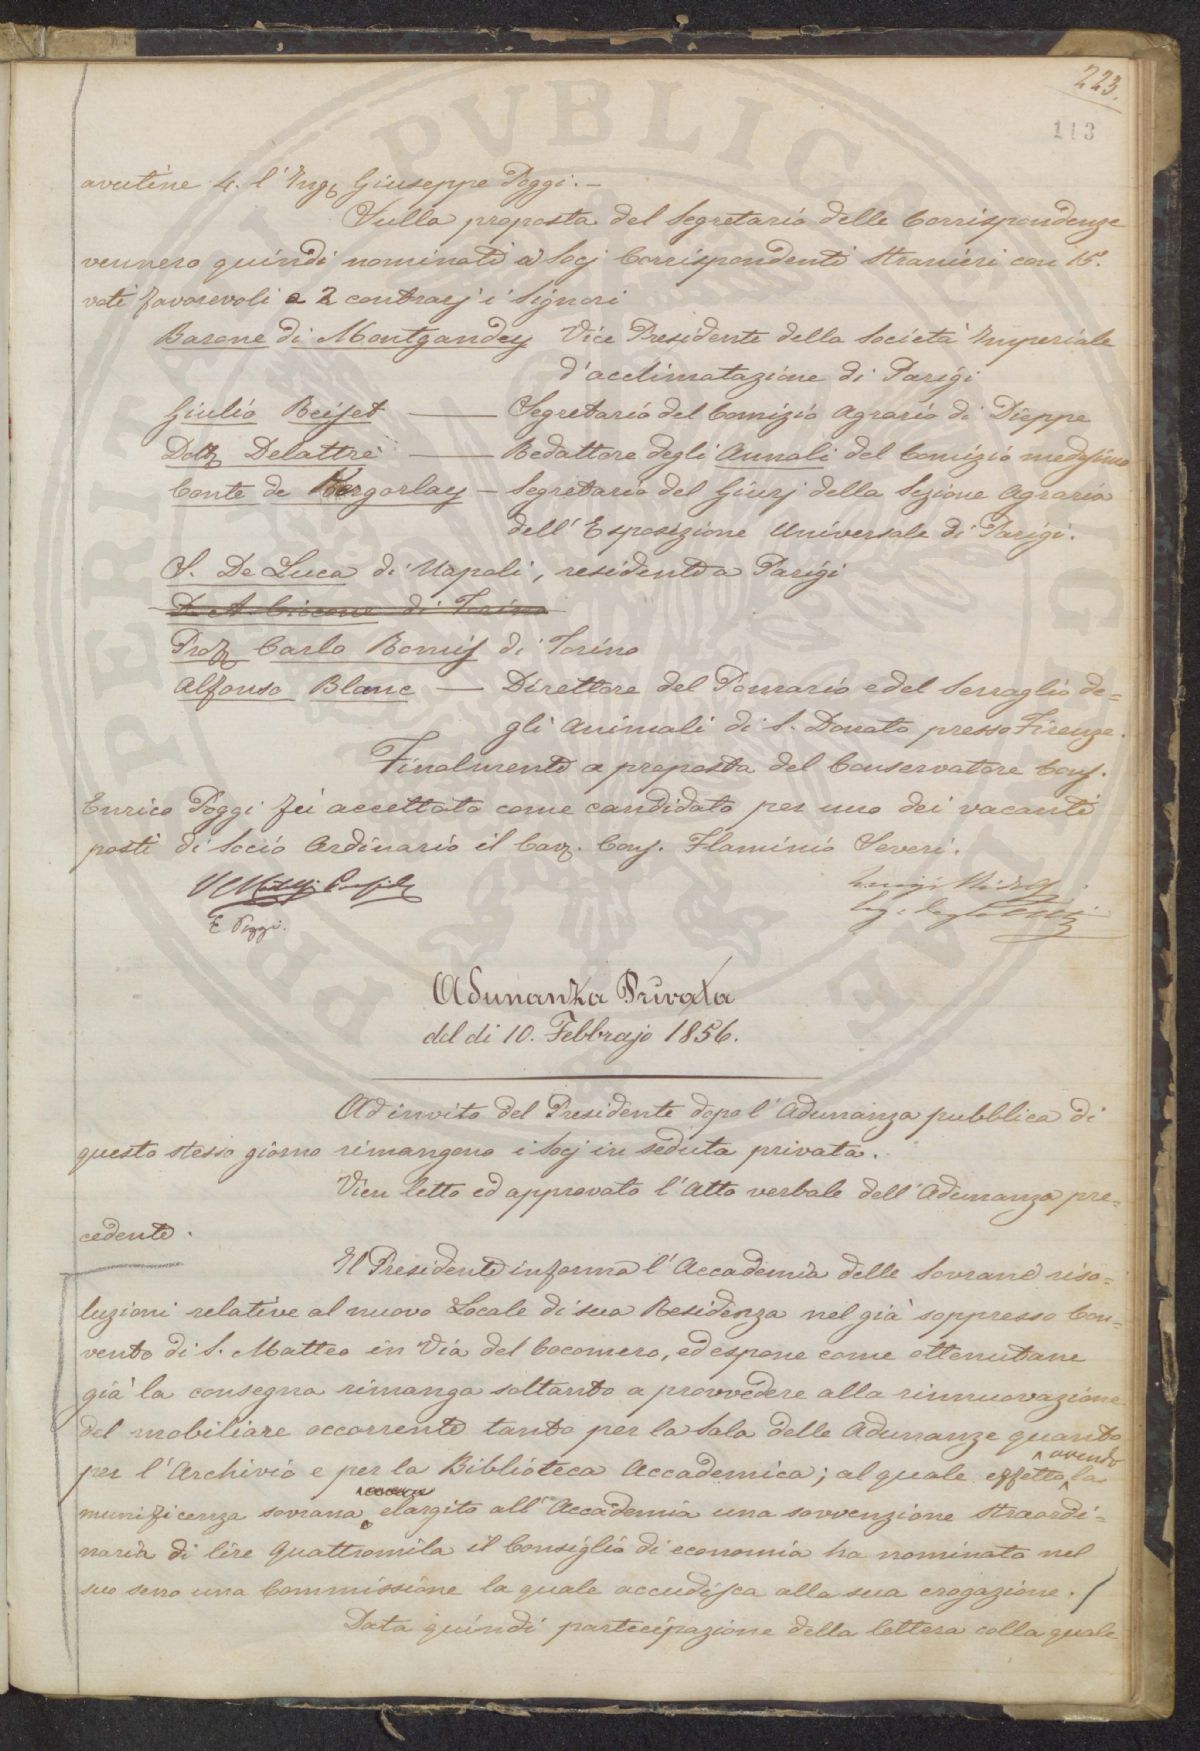 223.
113
avutine 4. l'Ing. Giuseppe Poggi. –
Sulla proposta del Segretario delle Corrispondenze
vennero quindi nominati a Socj Corrispondenti Stranieri con 15.
voti favorevoli e 2 contrarj i Signori
Barone di Montgaudry Vice Presidente della Società Imperiale
d'acclimatazione di Parigi
Giulio Reiset — Segretario del Comizio Agrario di Dieppe
Dott. Delattre — Redattore degli Annali del Comizio medesimo
Conte de Kergorlay – Segretario del Giurj della Sezione Agraria
dell'Esposizione Universale di Parigi.
S. De Luca di Napoli, residente a Parigi
di Torino
Prof. Carlo Bomis di Torino
Alfonso Blanc — Direttore del Pomario e del Serraglio de=
gli animali di S. Donato presso Firenze.
Finalmente a proposta del Conservatore Cons.
Enrico Poggi fu accettato come candidato per uno dei vacanti
posti di Socio Ordinario il Cav. Cons. Flaminio Severi.
E Poggi.
Adunanza Privata
del di 10. Febbrajo 1856.
Ad invito del Presidente dopo l'Adunanza pubblica di
questo stesso giorno rimangono i Socj in seduta privata.
Vien letto ed approvato l'Atto verbale dell'Adunanza pre=
cedente.
Il Presidente informa l'Accademia delle Sovrane riso=
luzioni relative al nuovo Locale di sua Residenza nel già soppresso Con=
vento di S. Matteo in Via del Cocomero, ed espone come ottenutane
già la consegna rimanga soltanto a provvedere alla rinnuovazione
del mobiliare occorrente tanto per la Sala delle Adunanze quanto
per l'Archivio e per la Biblioteca Accademica; al quale effetto avendo la
munificenza sovrana elargito all'Accademia una sovvenzione straordi=
naria di lire Quattromila il Consiglio di economia ha nominato nel
suo seno una Commissione la quale accudisca alla sua erogazione.
Data quindi partecipazione della lettera colla quale